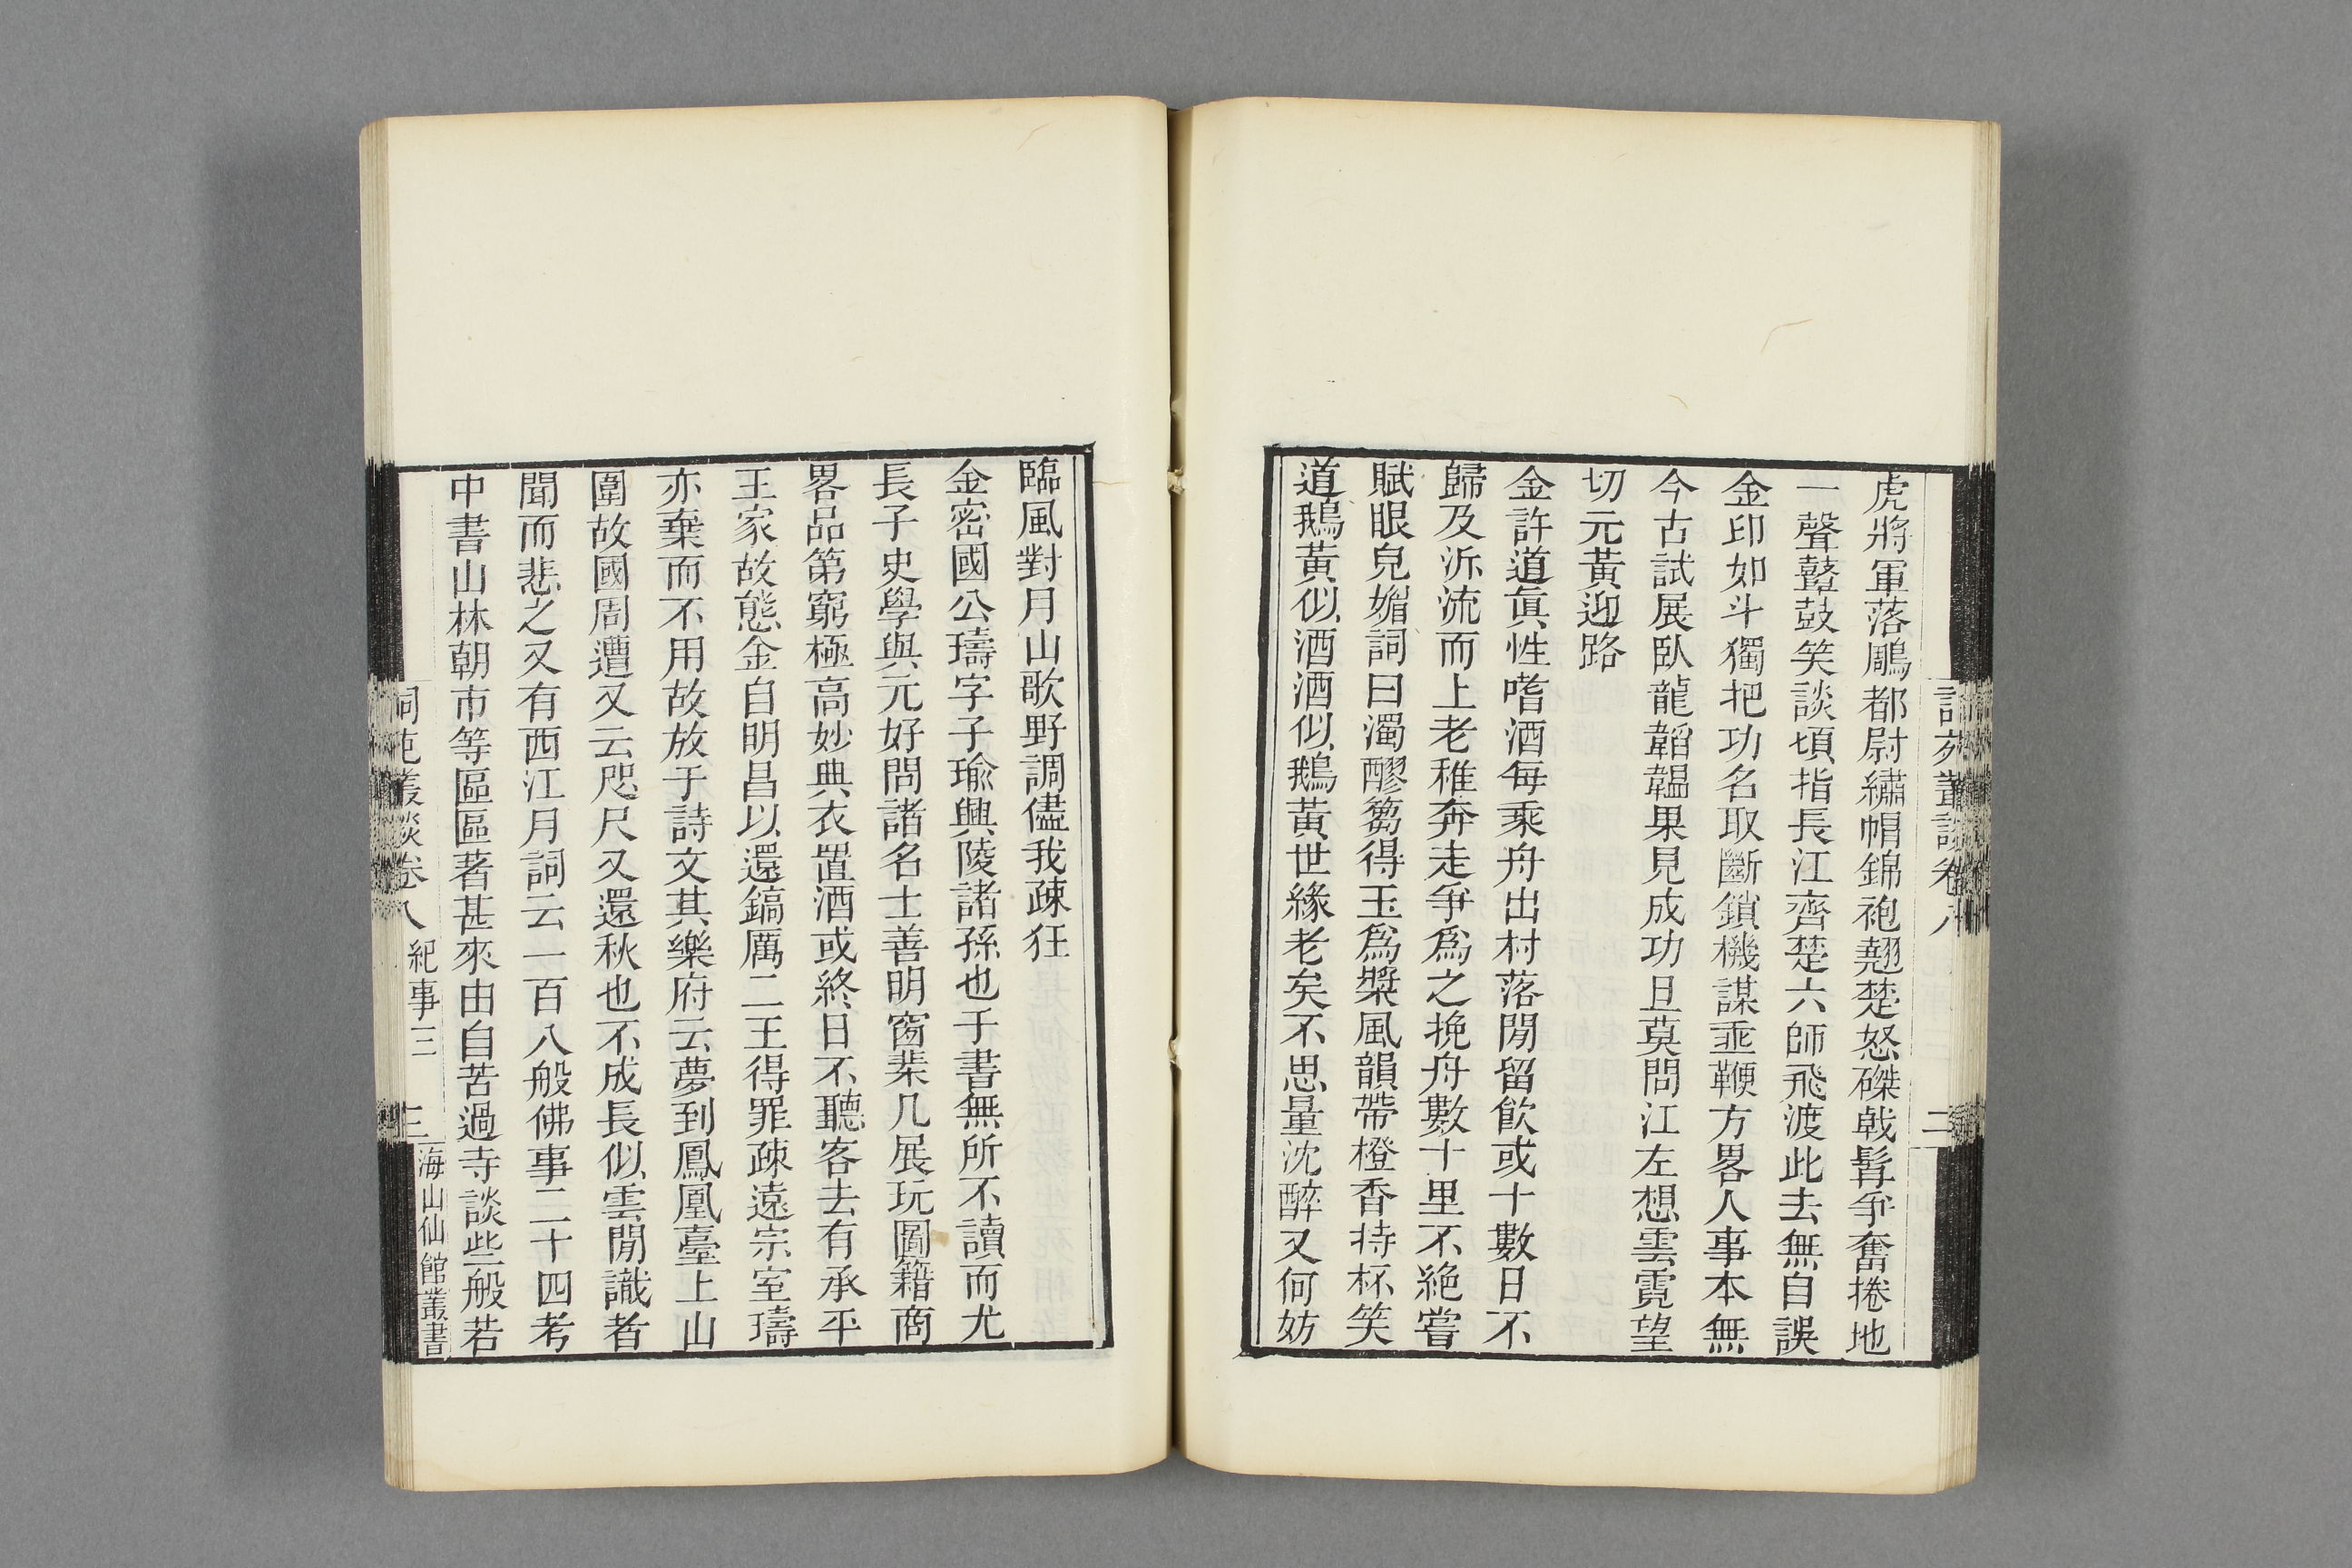 詞苑叢談卷八
二
虎將軍落鵰都尉繡帽錦袍翹楚怒磔戟髯爭奮捲地
一聲鼙鼓笑談頃指長江齊楚六師飛渡此去無自誤
金印如斗獨把功名取斷鎖機謀垂鞭方畧人事本無
今古試展臥龍韜韞果見成功旦莫問江左想雲霓望
切元黃迎路
金許道眞性嗜酒每乘舟出村落閒留飮或十數日不
歸及泝流而上老稚奔走爭爲之挽舟數十里不絶嘗
賦眼兒媚詞曰濁醪篘得玉爲漿風韻帶橙香持杯笑
道鵝黃似酒酒似鵝黃世緣老矣不思量沈醉又何妨
臨風對月山歌野調儘我疎狂
金密國公璹字子瑜興陵諸孫也于書無所不讀而尤
長子史學與元好問諸名士善明窗棐几展玩圖籍商
畧品第窮極高妙典衣置酒或終日不聽客去有承平
王家故態金自明昌以還鎬厲二王得罪疎遠宗室璹
亦棄而不用故放于詩文其樂府云夢到鳳凰臺上山
圍故國周遭又云咫尺又還秋也不成長似雲閒識者
聞而悲之又有西江月詞云一百八般佛事二十四考
中書山林朝市等區區著甚來由自苦過寺談些般若
詞苑叢談卷八 紀事三
三
海山仙館叢書